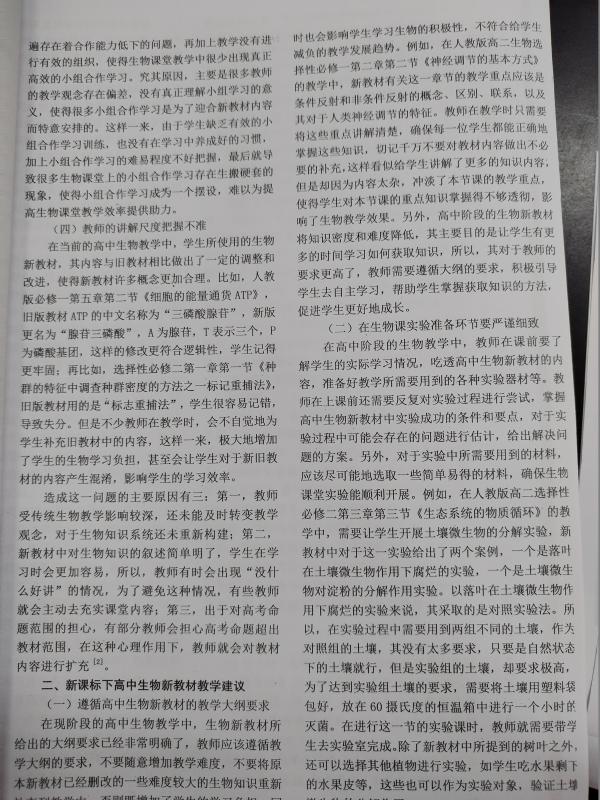 遍存在着合作能力低下的问题，再加上教学没有进
行有效的组织，使得生物课堂教学中很少出现真正
高效的小组合作学习。究其原因，主要是很多教师
的教学观念存在偏差，没有真正理解小组学习的意
义，使得很多小组合作学习是为了迎合新教材内容
而特意安排的。这样一来，由于学生缺乏有效的小
组合作学习训练，也没有在学习中养成好的习惯，
加上小组合作学习的难易程度不好把握，最后就导
致很多生物课堂上的小组合作学习存在生搬硬套的
现象，使得小组合作学习成为一个摆设，难以为提
高生物课堂教学效率提供助力。
（四）教师的讲解尺度把握不准
在当前的高中生物教学中，学生所使用的生物
新教材，其内容与旧教材相比做出了一定的调整和
改进，使得新教材许多概念更加合理。比如，人教
版必修一第五章第二节《细胞的能量通货 ATP》，
旧版教材 ATP 的中文名称为“三磷酸腺苷”，新版
更名为“腺苷三磷酸”，A 为腺苷，T 表示三个，P
为磷酸基团，这样的修改更符合逻辑性，学生记得
更牢固；再比如，选择性必修二第一章第一节《种
群的特征中调查种群密度的方法之一标记重捕法》，
旧版教材用的是“标志重捕法”，学生很容易记错，
导致失分。但是不少教师在教学时，会不自觉地为
学生补充旧教材中的内容，这样一来，极大地增加
了学生的生物学习负担，甚至会让学生对于新旧教
材的内容产生混淆，影响学生的学习效率。
造成这一问题的主要原因有三：第一，教师
受传统生物教学影响较深，还未能及时转变教学
观念，对于生物知识系统还未重新构建；第二，
新教材中对生物知识的叙述简单明了，学生在学
习时会更加容易，所以，教师有时会出现“没什
么好讲”的情况，为了避免这种情况，有些教师
就会主动去充实课堂内容；第三，出于对高考命
题范围的担心，有部分教师会担心高考命题超出
教材范围，在这种心理作用下，教师就会对教材
内容进行扩充 [2]。
二、新课标下高中生物新教材教学建议
（一）遵循高中生物新教材的教学大纲要求
在现阶段的高中生物教学中，生物新教材所
给出的大纲要求已经非常明确了，教师应该遵循教
学大纲的要求，不要随意增加教学难度，不要将原
本新教材已经删改的一些难度较大的生物知识重新
时也会影响学生学习生物的积极性，不符合给学生
减负的教学发展趋势。例如，在人教版高二生物选
择性必修一第二章第二节《神经调节的基本方式》
的教学中，新教材有关这一章节的教学重点应该是
条件反射和非条件反射的概念、区别、联系，以及
其对于人类神经调节的特征。教师在教学时只需要
将这些重点讲解清楚，确保每一位学生都能正确地
掌握这些知识，切记千万不要对教材内容做出不必
要的补充，这样看似给学生讲解了更多的知识内容，
但是却因为内容太杂，冲淡了本节课的教学重点，
使得学生对本节课的重点知识掌握得不够透彻，影
响了生物教学效果。另外，高中阶段的生物新教材
将知识密度和难度降低，其主要目的是让学生有更
多的时间学习如何获取知识，所以，其对于教师的
要求更高了，教师需要遵循大纲的要求，积极引导
学生去自主学习，帮助学生掌握获取知识的方法，
促进学生更好地成长。
（二）在生物课实验准备环节要严谨细致
在高中阶段的生物教学中，教师在课前要了
解学生的实际学习情况，吃透高中生物新教材的内
容，准备好教学所需要用到的各种实验器材等。教
师在上课前还需要反复对实验过程进行尝试，掌握
高中生物新教材中实验成功的条件和要点，对于实
验过程中可能会存在的问题进行估计，给出解决问
题的方案。另外，对于实验中所需要用到的材料，
应该尽可能地选取一些简单易得的材料，确保生物
课堂实验能顺利开展。例如，在人教版高二选择性
必修二第三章第三节《生态系统的物质循环》的教
学中，需要让学生开展土壤微生物的分解实验，新
教材中对于这一实验给出了两个案例，一个是落叶
在土壤微生物作用下腐烂的实验，一个是土壤微生
物对淀粉的分解作用实验。以落叶在土壤微生物作
用下腐烂的实验来说，其采取的是对照实验法。所
以，在实验过程中需要用到两组不同的土壤，作为
对照组的土壤，其没有太多要求，只要是自然状态
下的土壤就行，但是实验组的土壤，却要求极高，
为了达到实验组土壤的要求，需要将土壤用塑料袋
包好，放在 60 摄氏度的恒温箱中进行一个小时的
灭菌。在进行这一节的实验课时，教师就需要带学
生去实验室完成。除了新教材中所提到的树叶之外，
还可以选择其他植物进行实验，如学生吃水果剩下
的水果皮等，这些也可以作为实验对象，验证土壤